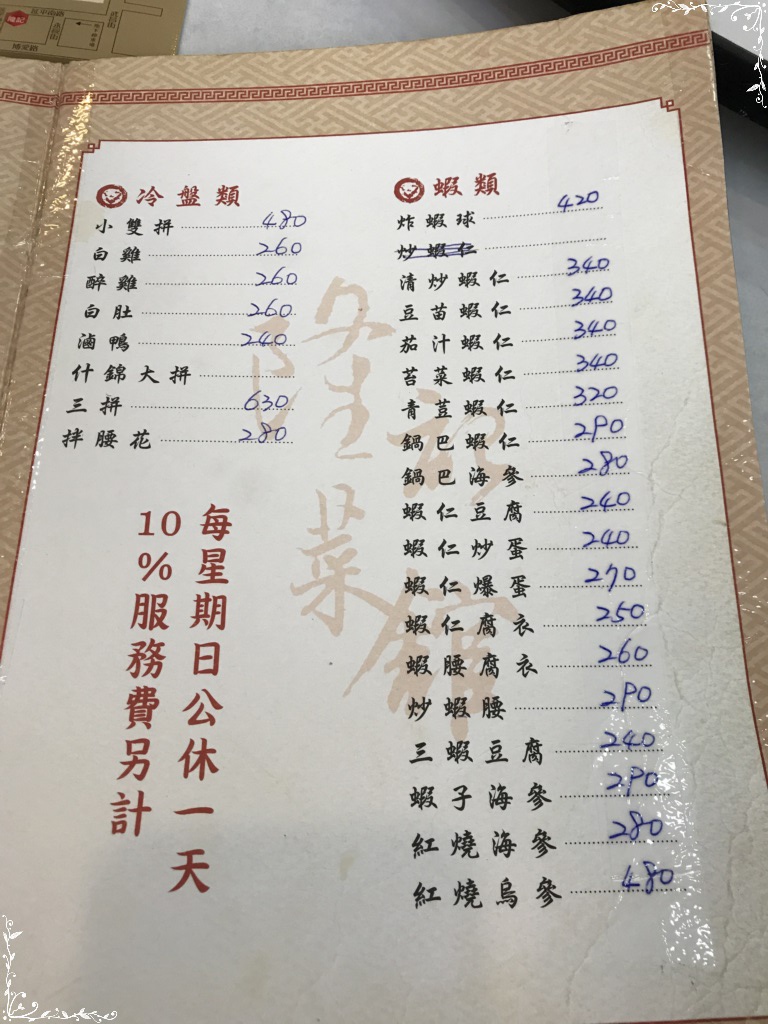 隆記
隆記菜館
冷盤類
小雙拼 480
白雞 260
醉雞 260
白肚 260
滷鴨 240
什錦大拼
三拼 630
拌腰花 280
每星期日公休一天
10%服務費另計
蝦類
炸蝦球 420
炒蝦仁
清炒蝦仁 340
豆苗蝦仁 340
茄汁蝦仁 340
苔菜蝦仁 340
青荳蝦仁 320
鍋巴蝦仁 290
鍋巴海參 280
蝦仁豆腐 240
蝦仁炒蛋 240
蝦仁爆蛋 270
蝦仁腐衣 250
蝦腰腐衣 260
炒蝦腰 290
三蝦豆腐 240
蝦子海參 290
紅燒海參 280
紅燒烏參 480